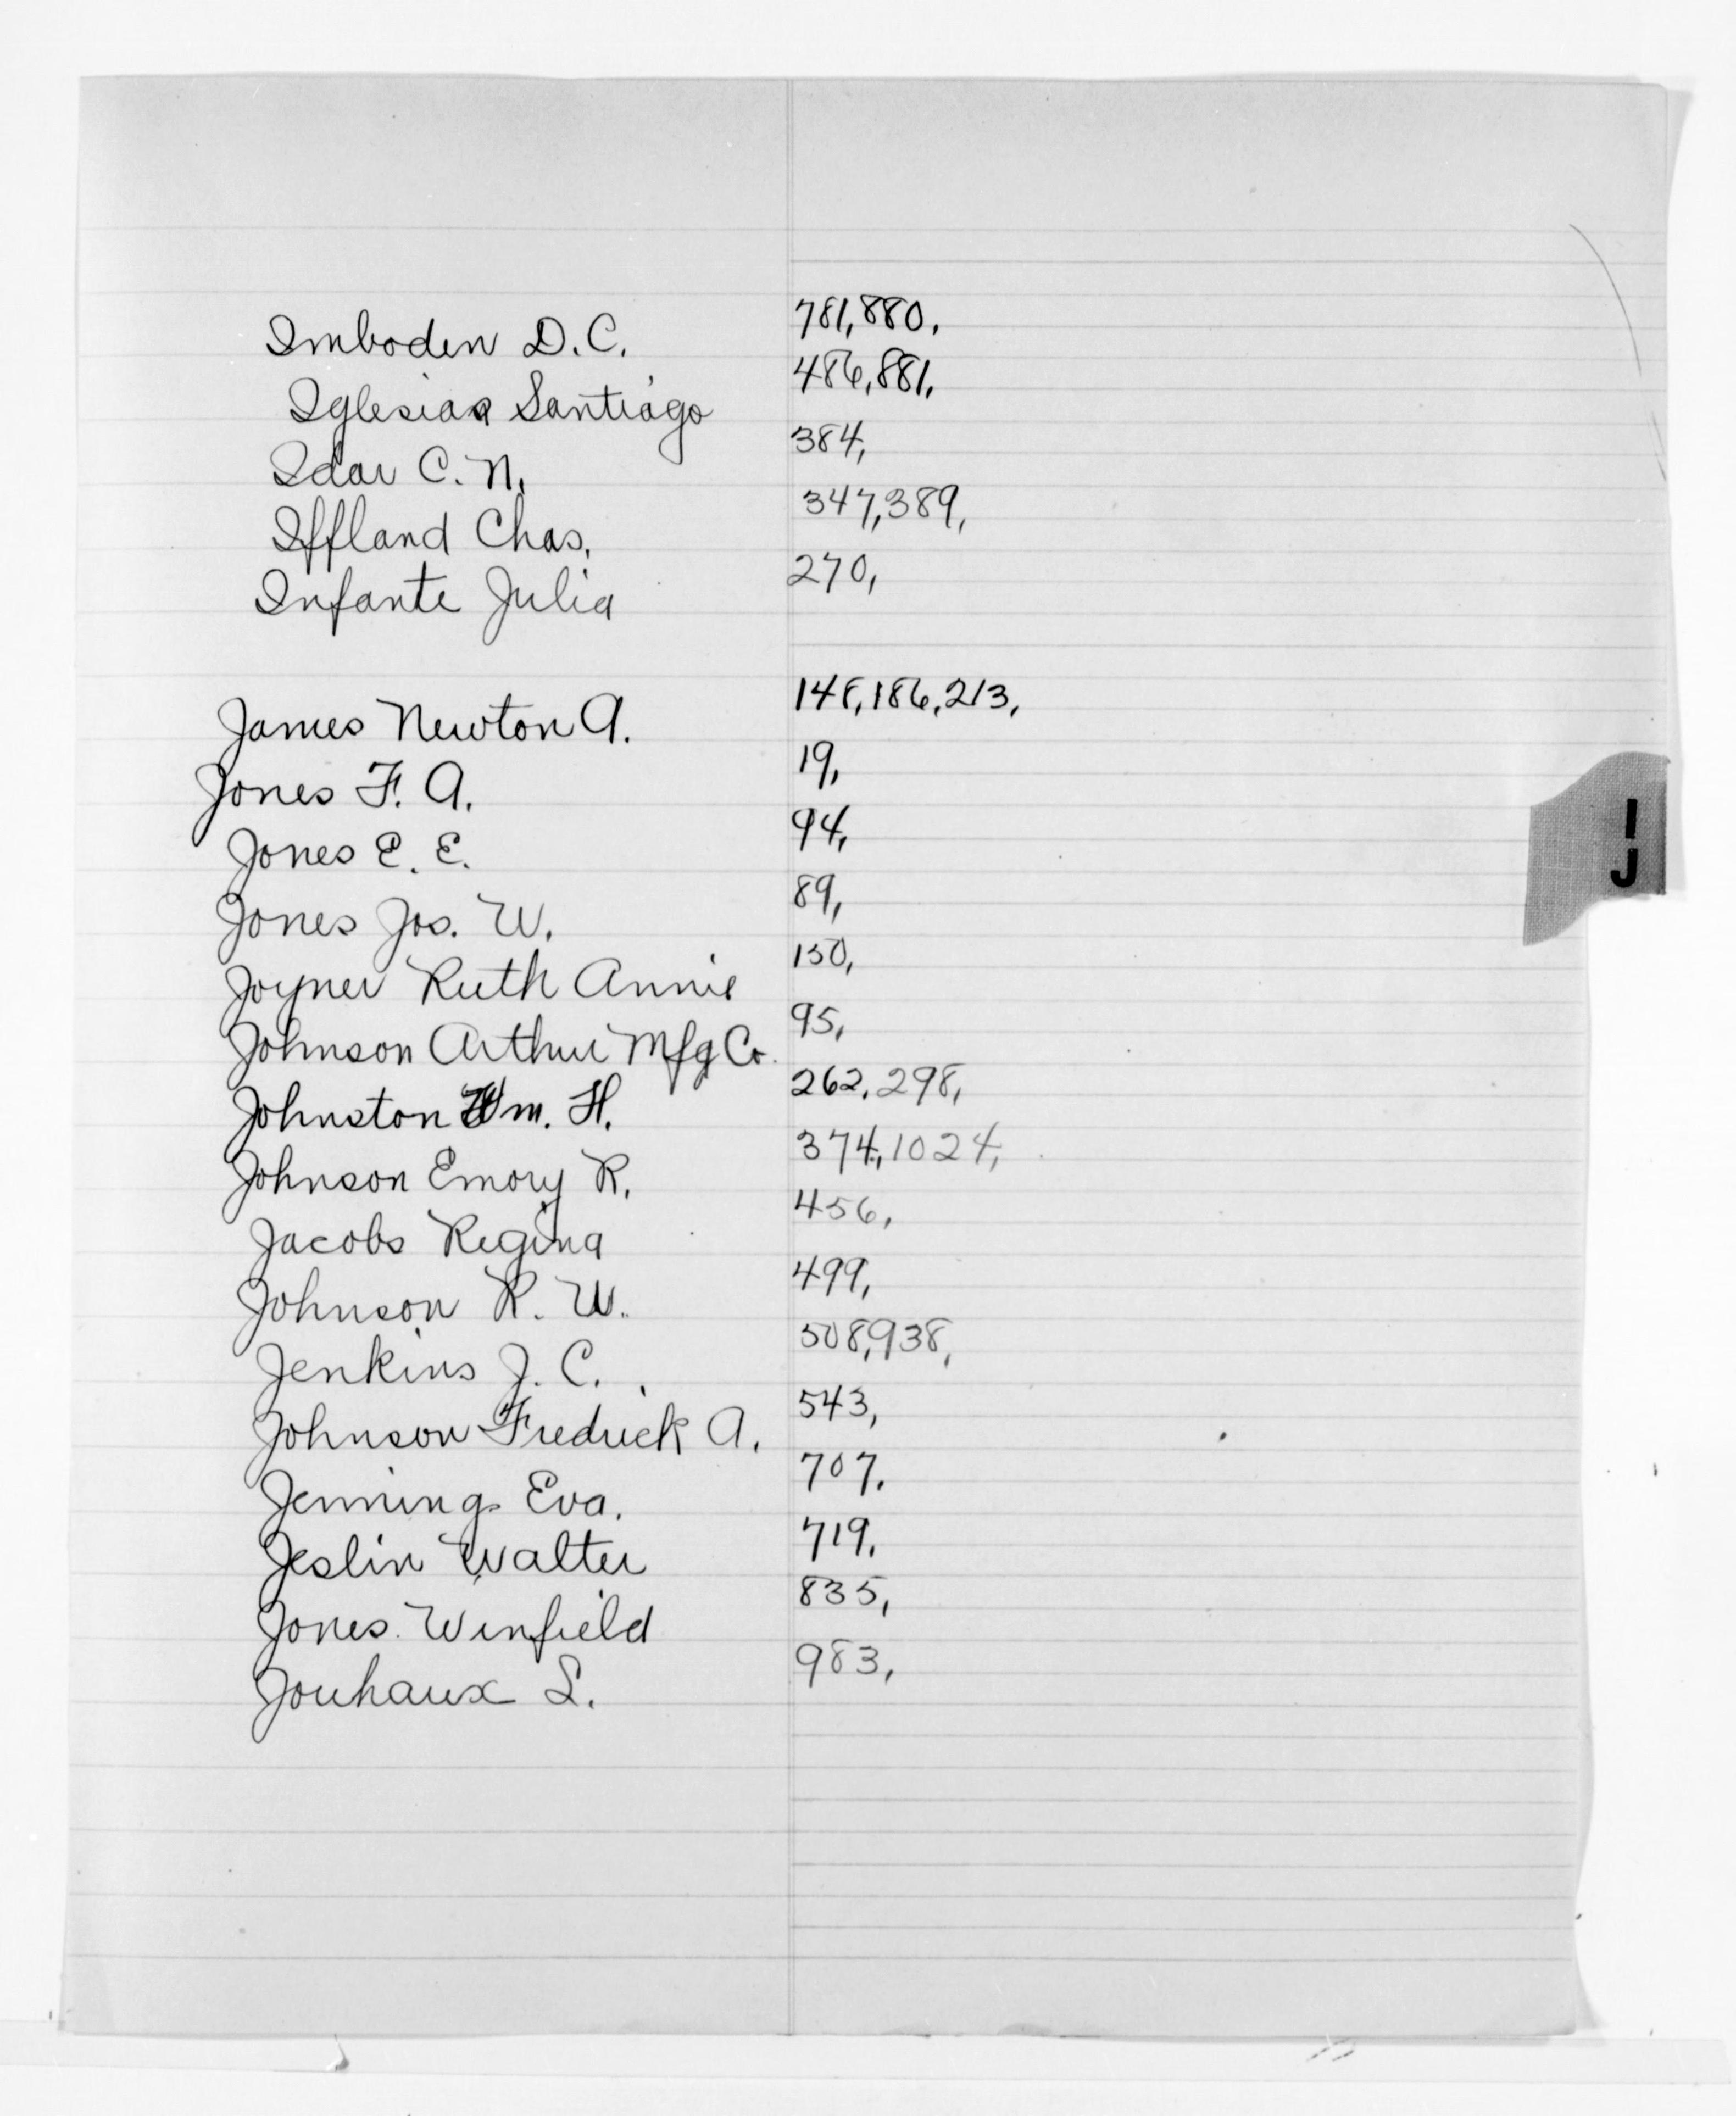 Imboden D.C. 781,880,
Iglesias Santiago 486,881,
Idar C. N. 384,
Iffland Chas. 347,389,
Infante Julia 270,
James Newton A. 148,186,213,
Jones F. A. 19,
Jones E. E. 94,
I
J
Jones Jos. W. 89,
Joyner Ruth Annie 150,
Johnson Arthur Mfg Co. 95,
Johnston Wm. H. 262,298,
Johnson Emory R. 374,1024,
Jacobs Regina 456,
Johnson R. W. 499,
Jenkins J. C. 508,938,
Johnson Fredrick A. 543,
Jennings Eva. 707.
Jeslin Walter 719.
Jones Winfield 835,
Jouhaux L. 983,